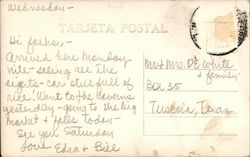 Wednesday -
TARJETA POSTAL
Hi folks, -
Arrived here Monday
nite - seeing all the
sights - car still full of
rice. Went to the caverns
yesterday - going to the big
market & Toles today -
See you Saturday
Love
Edna + Bill
Mr & Mrs. D. White
& family
Box 35
Tuscola, Texas